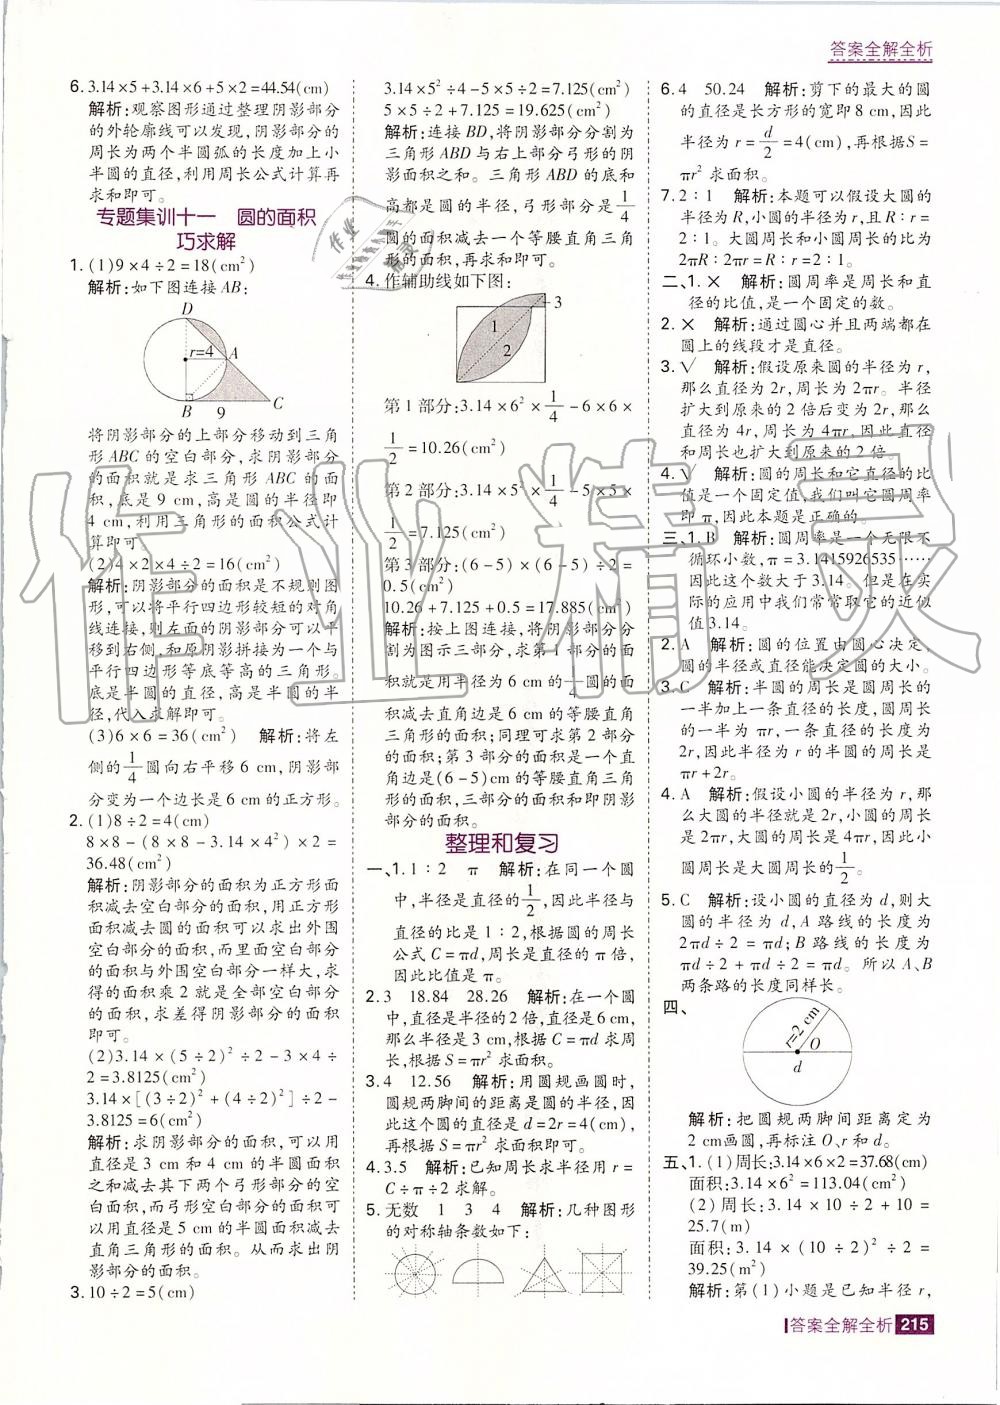 答案全解全析
6. 3.14×5+3.14×6+5×2=44.54(cm)
解析:观察图形通过整理阴影部分
的外轮廓线可以发现,阴影部分的
周长为两个半圆弧的长度加上小
半圆的直径,利用周长公式计算再
求和即可。
专题集训十一 圆的面积
巧求解
1. (1)9×4÷2=18(cm²)
解析:如下图连接AB:
D
r=4
A
B
9
C
将阴影部分的上部分移动到三角
形ABC的空白部分,求阴影部分
的面积就是求三角形ABC的面
积,底是9 cm,高是圆的半径即
4 cm,利用三角形的面积公式计
算即可。
(2)4×2×4÷2=16(cm²)
解析:阴影部分的面积是不规则图
形,可以将平行四边形较短的对角
线连接,则左面的阴影部分可以平
移到右侧,和原阴影拼接为一个与
平行四边形等底等高的三角形。
底是半圆的直径,高是半圆的半
径,代入求解即可。
(3)6×6=36(cm²) 解析:将左
侧的1/4圆向右平移6 cm,阴影部
分变为一个边长是6 cm的正方形。
2. (1)8÷2=4(cm)
8×8-(8×8-3.14×4²)×2=
36.48(cm²)
解析:阴影部分的面积为正方形面
积减去空白部分的面积,用正方形
面积减去圆的面积可以求出外围
空白部分的面积,而里面空白部分
的面积与外围空白部分一样大,求
得的面积乘2就是全部空白部分
的面积,求差得阴影部分的面积
即可。
(2)3.14×(5÷2)²÷2-3×4÷
2=3.8125(cm²)
3.14×[(3÷2)²+(4÷2)²]÷2-
3.8125=6(cm²)
解析:求阴影部分的面积,可以用
直径是3 cm和4 cm的半圆面积
之和减去其下两个弓形部分的空
白面积,而弓形空白部分的面积可
以用直径是5 cm的半圆面积减去
直角三角形的面积。从而求出阴
影部分的面积。
3. 10÷2=5(cm)
3.14×5²÷4-5×5÷2=7.125(cm²)
5×5÷2+7.125=19.625(cm²)
解析:连接BD,将阴影部分分割为
三角形ABD与右上部分弓形的阴
影面积之和。三角形ABD的底和
高都是圆的半径,弓形部分是1/4
圆的面积减去一个等腰直角三角
形的面积,再求和即可。
4. 作辅助线如下图:
1
2
3
第1部分:3.14×6²×1/4-6×6×
1/2=10.26(cm²)
第2部分:3.14×5²×1/4-5×5×
1/2=7.125(cm²)
第3部分:(6-5)×(6-5)÷2=
0.5(cm²)
10.26+7.125+0.5=17.885(cm²)
解析:按上图连接,将阴影部分分
割为图示三部分,求第1部分的面
积就是用半径为6 cm的1/4圆的面
积减去直角边是6 cm的等腰直角
三角形的面积;同理可求第2部分
的面积;第3部分的面积是一个直
角边是(6-5)cm的等腰直角三角
形的面积,三部分的面积和即阴影
部分的面积。
整理和复习
一、1. 1∶2 π 解析:在同一个圆
中,半径是直径的1/2,因此半径与
直径的比是1∶2,根据圆的周长
公式C=πd,周长是直径的π倍,
因此比值是π。
2. 3 18.84 28.26 解析:在一个圆
中,直径是半径的2倍,直径是6 cm,
那么半径是3 cm,根据C=πd求周
长,根据S=πr²求面积。
3. 4 12.56 解析:用圆规画圆时,
圆规两脚间的距离是圆的半径,因
此这个圆的直径是d=2r=4(cm),
再根据S=πr²求面积即可。
4. 3.5 解析:已知周长求半径用r=
C÷π÷2求解。
5. 无数 1 3 4 解析:几种图形
的对称轴条数如下:
6. 4 50.24 解析:剪下的最大的圆
的直径是长方形的宽即8 cm,因此
半径为r=d/2=4(cm),再根据S=
πr²求面积。
7. 2∶1 解析:本题可以假设大圆的
半径为R,小圆的半径为r,且R∶r=
2∶1。大圆周长和小圆周长的比为
2πR∶2πr=R∶r=2∶1。
二、1. × 解析:圆周率是周长和直
径的比值,是一个固定的数。
2. × 解析:通过圆心并且两端都在
圆上的线段才是直径。
3. √ 解析:假设原来圆的半径为r,
那么直径为2r,周长为2πr。半径
扩大到原来的2倍后变为2r,那么
直径为4r,周长为4πr,因此直径
和周长也扩大到原来的2倍。
4. √ 解析:圆的周长和它直径的比
值是一个固定值,我们叫它圆周率
即π,因此本题是正确的。
三、1. B 解析:圆周率是一个无限不
循环小数,π=3.1415926535……
因此这个数大于3.14。但是在实
际的应用中我们常常取它的近似
值3.14。
2. A 解析:圆的位置由圆心决定,
圆的半径或直径能决定圆的大小。
3. C 解析:半圆的周长是圆周长的
一半加上一条直径的长度,圆周长
的一半为πr,一条直径的长度为
2r,因此半径为r的半圆的周长是
πr+2r。
4. A 解析:假设小圆的半径为r,那
么大圆的半径就是2r,小圆的周长
是2πr,大圆的周长是4πr,因此小
圆周长是大圆周长的1/2。
5. C 解析:设小圆的直径为d,则大
圆的半径为d,A路线的长度为
2πd÷2=πd;B路线的长度为
πd÷2+πd÷2=πd。所以A、B
两条路的长度同样长。
四、
r=2 cm
O
d
解析:把圆规两脚间距离定为
2 cm画圆,再标注O、r和d。
五、1. (1)周长:3.14×6×2=37.68(cm)
面积:3.14×6²=113.04(cm²)
(2)周长:3.14×10÷2+10=
25.7(m)
面积:3.14×(10÷2)²÷2=
39.25(m²)
解析:第(1)小题是已知半径r,
答案全解全析 215
作业精灵